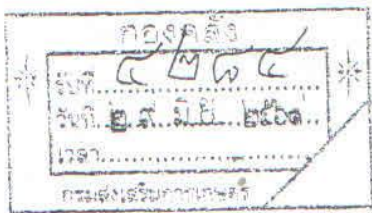 กองคลัง
เลขที่ ๔๒๘๔
วันที่ ๒๙ มิ.ย. ๒๕๖๗
เวลา
กรมส่งเสริมการเกษตร